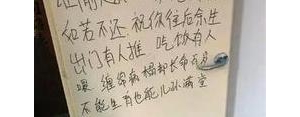 你若不还 祝你往后余生
出门有人推 吃饭有人
喂 缠绵病榻却长命百岁
不能生育也能儿孙满堂